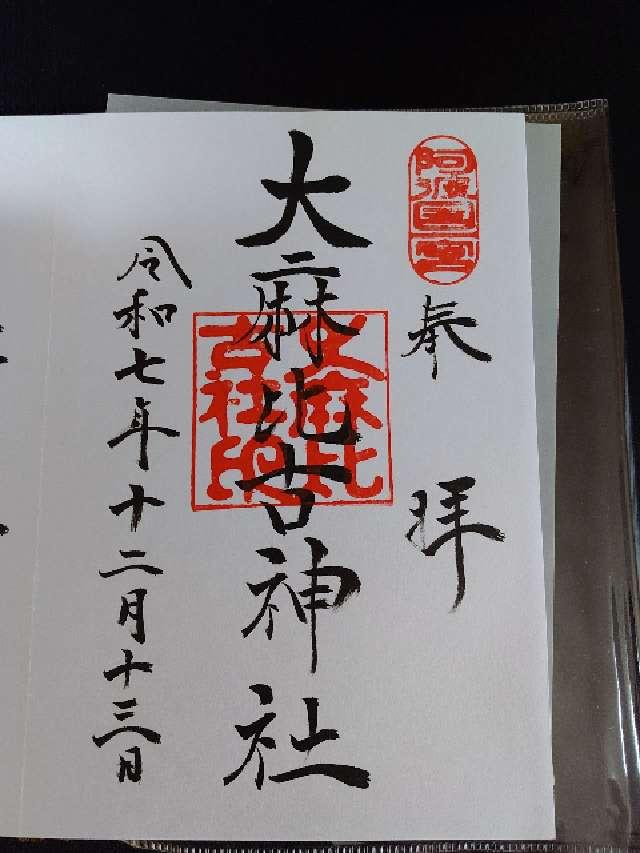 阿波国一宮
奉拝
大麻比古神社
大麻比古社印
令和七年十二月十三日